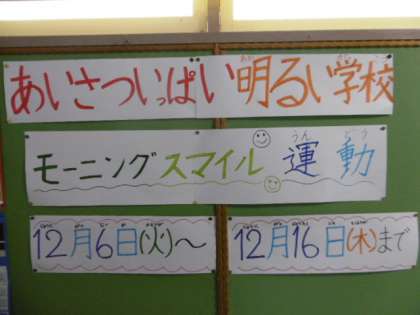 あいさついっぱい明るい学校
モーニングスマイル運動
12月6日(火)～
12月16日(木)まで